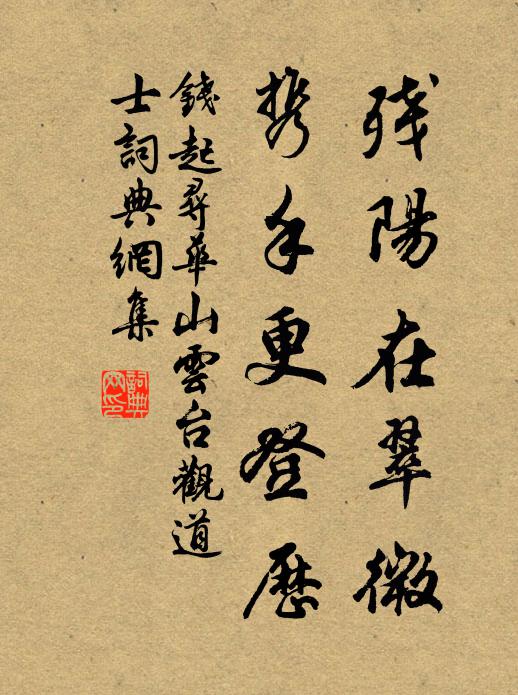 残陽在翠微
携手更登歷
錢起尋華山雲台觀道
士詞典網集
詞典
网印